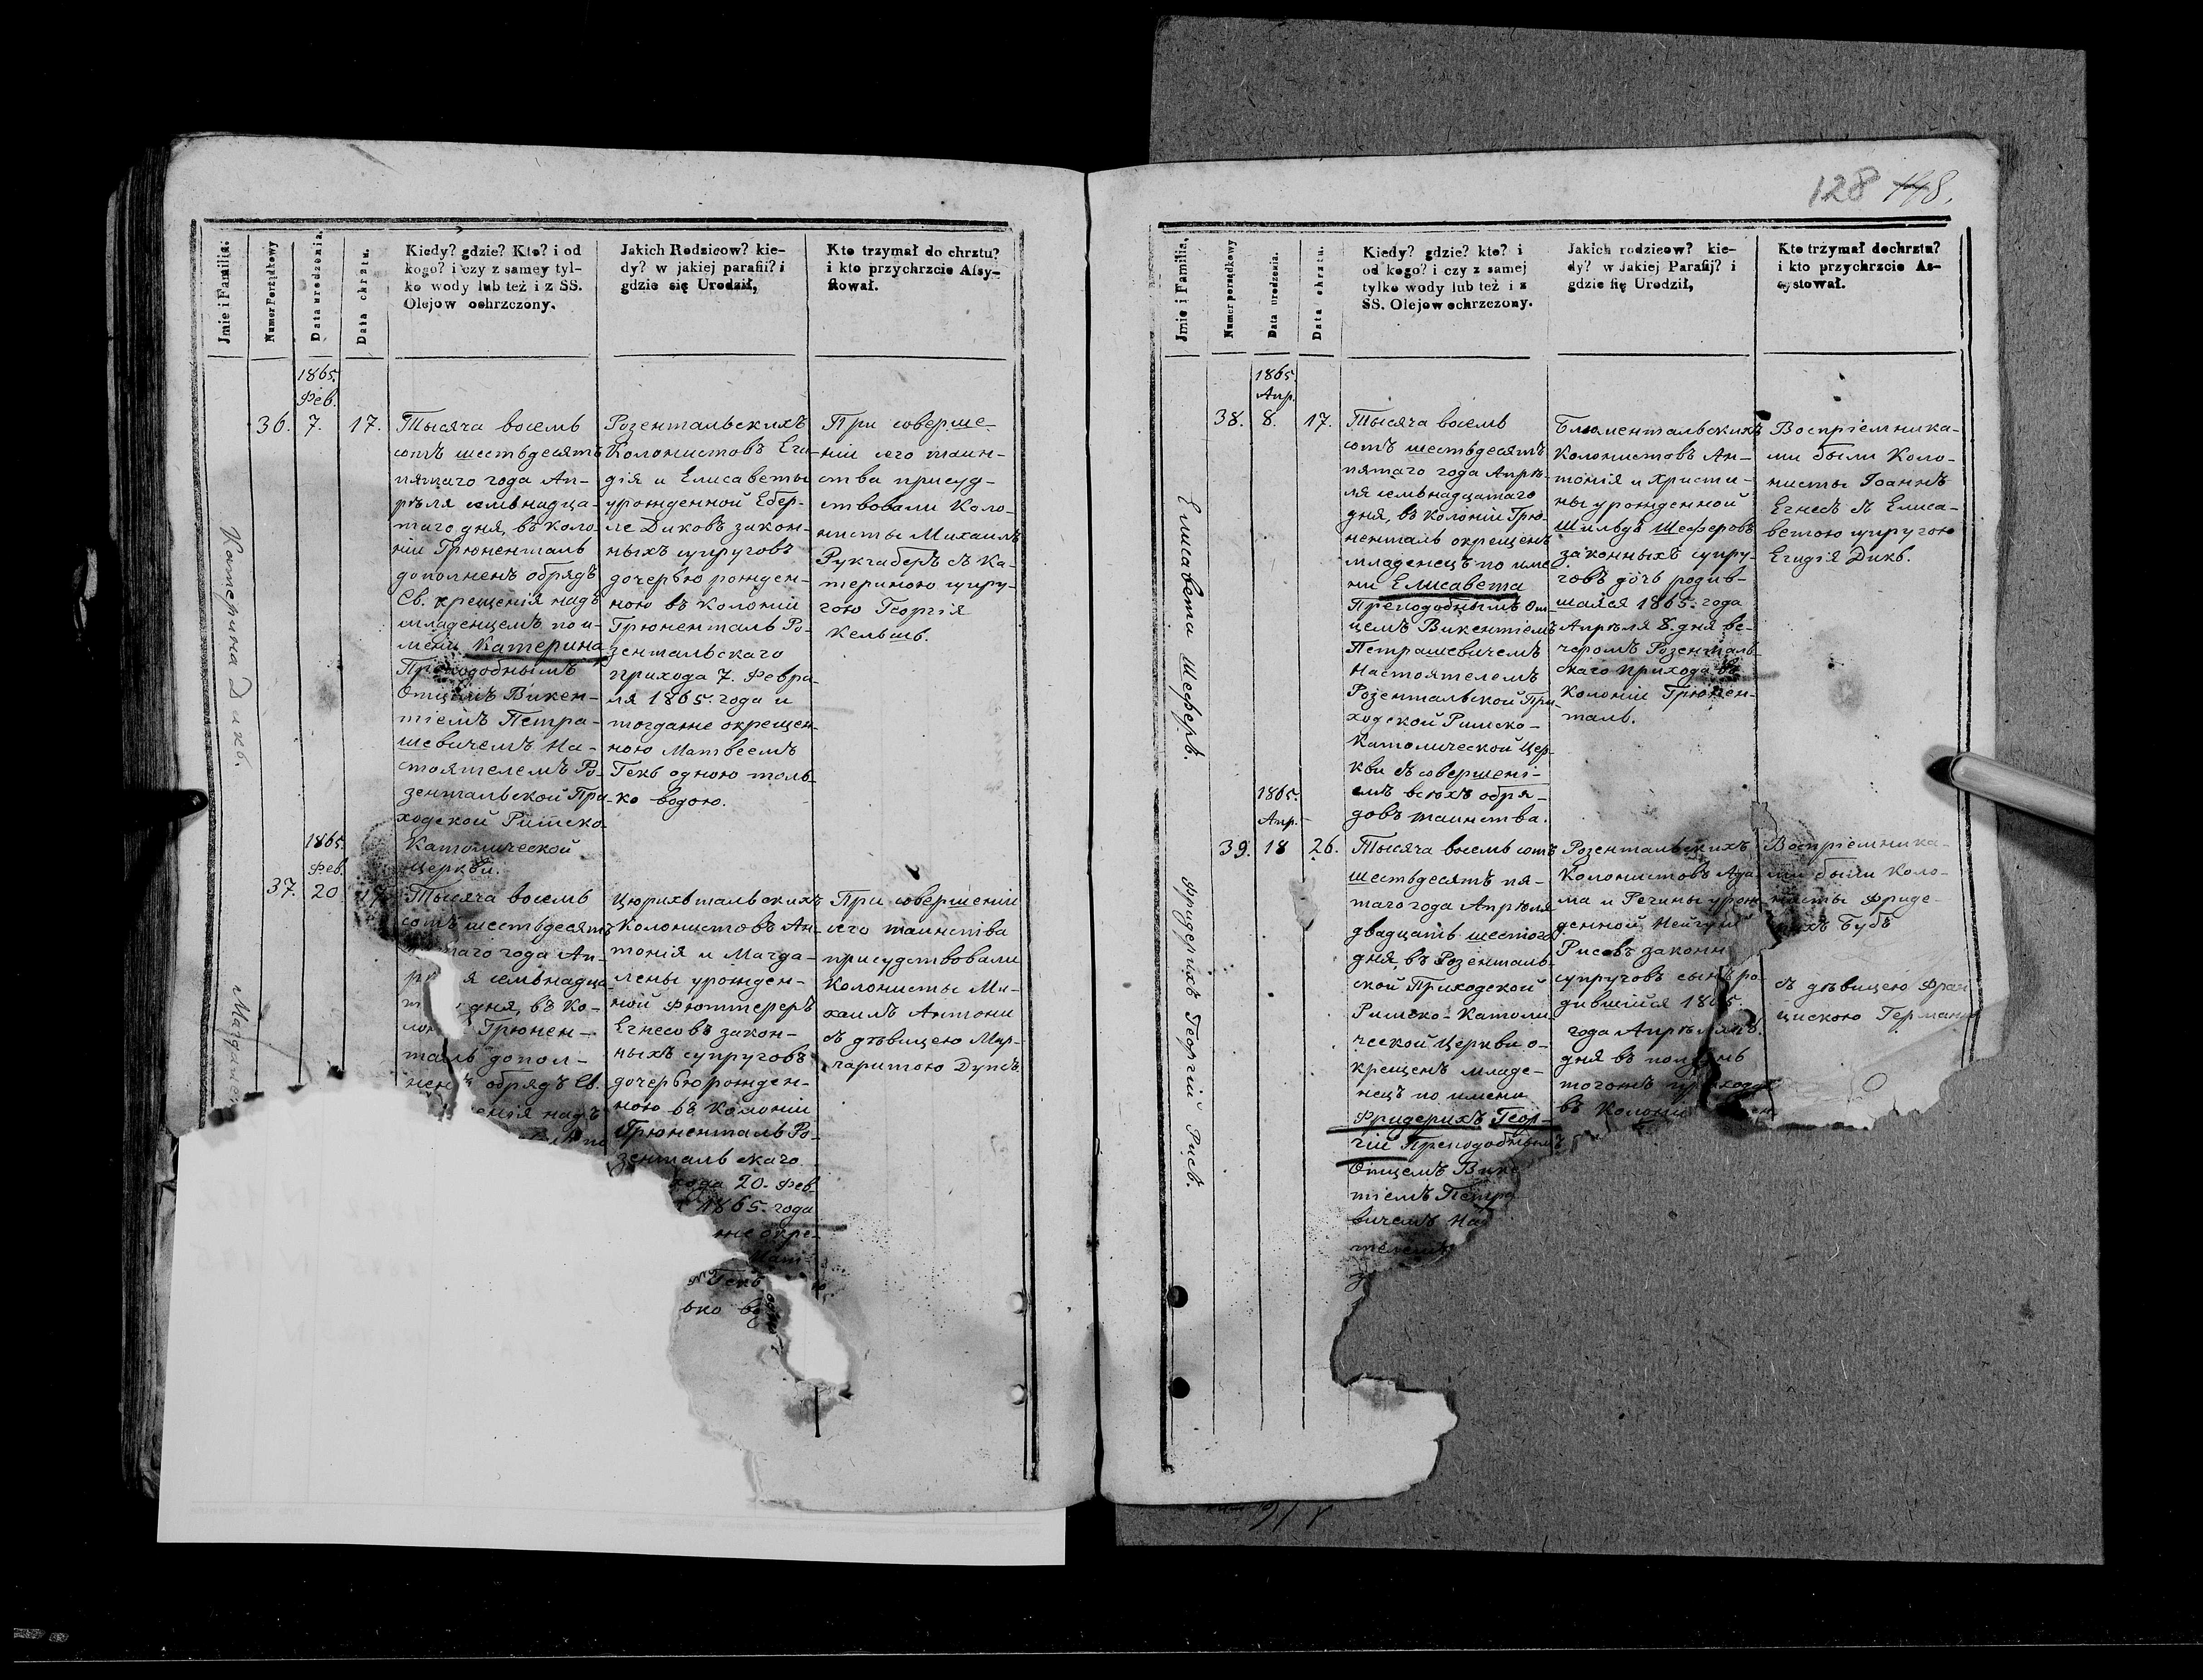 128 148.
Jmie i Familia.
Numer Porządkowy
Data urodzenia.
Data chrztu.
Kiedy? gdzie? Kto? i od
kogo? i czy z samey tyl-
ko wody lub też i z SS.
Olejow ochrzczony.
Jakich Rodzicow? kie-
dy? w jakiej parafii? i
gdzie się Urodził,
Kto trzymał do chrztu?
i kto przychrzcie Assy-
stował.
Катерина Дикъ.
1865.
Фев.
36. 7. 17.
Тысяча восемь
сотъ шестьдесятъ
пятаго года Ап-
рѣля семьнадца-
таго дня, въ коло-
ніи Грюненталь
дополненъ обрядъ
Св. крещенія надъ
младенцемъ по и-
мени Катерина
Преподобнымъ
Отцемъ Викен-
тіемъ Петра-
шевичемъ На-
стоятелемъ Ро-
зентальской При-
ходской Римско
Католической
Церкви.
Розентальскихъ
Колонистовъ Еги-
дія и Елисаветы
урожденной Ебер-
ле Диковъ закон-
ныхъ супруговъ
дочерью рожден-
ною въ Колоніи
Грюненталь Ро-
зентальскаго
прихода 7. Февра-
ля 1865. года и
тогдаже окрещен-
ною Матвеемъ
Гекъ одною толь-
ко водою.
При соверше-
ніи сего таин-
ства присуд-
ствовали Коло-
нисты Михаилъ
Рукгаберъ съ Ка-
териною супру-
гою Георгія
Кельшъ.
Магдалена
1865.
Фев.
37. 20 17.
Тысяча восемь
сотъ шестьдесятъ
таго года Ап-
я семьнадца-
дня, въ Ко-
Грюнен-
таль допол-
ненъ обрядъ Св.
енія надъ
Цюрихтальскихъ
Колонистовъ Ан-
тонія и Магда-
лены урожден-
ной Фюттереръ
Егнесовъ закон-
ныхъ супруговъ
дочерью рожден-
ною въ Колоніи
Грюненталь Ро-
зентальскаго
хода 20. Фев
1865. года
же окре-
Мат-
Гекъ
ько во
При совершеніи
сего таинства
присудствовали
Колонисты Ми-
хаилъ Антони
съ дѣвицею Мар-
гаритою Дупсъ.
Jmie i Familia,
Numer porządkowy
Data urodzenia.
Data chrztu.
Kiedy? gdzie? kto? i
od kogo? i czy z samej
tylko wody lub też i z
SS. Olejow ochrzczony.
Jakich rodzicow? kie-
dy? w Jakiej Parafij? i
gdzie się Urodził,
Kto trżymał dochrztu?
i kto przychrzcie As-
systował.
Елисавета Шеферъ.
1865.
Апр.
38. 8. 17.
Тысяча восемь
сотъ шестьдесятъ
пятаго года Апрѣ-
ля семьнадцатаго
дня, въ колоніи Грю-
ненталь окрещенъ
младенецъ по име
ни Елисавета
Преподобнымъ От-
цемъ Викентіемъ
Петрашевичемъ
Настоятелемъ
Розентальской При-
ходской Римско-
Католической Цер-
кви съ совершені-
емъ всѣхъ обря-
довъ таинства.
Блюментальскихъ
Колонистовъ Ан-
тонія и Христи-
ны урожденной
Шильдъ Шеферовъ
законныхъ супру-
говъ дочь родив-
шаяся 1865. года
Апрѣля 8. дня ве-
черомъ Розенталь-
скаго прихода въ
Колоніи Грюнен-
таль.
Воспріемника-
ми были Коло-
нисты Іоаннъ
Егнесъ съ Елиса-
ветою супругою
Егидія Дикъ.
Фридерихъ Георгій Рисъ.
1865.
Апр.
39. 18 26.
Тысяча восемь сотъ
шестьдесятъ пя-
таго года Апрѣля
двадцать шестого
дня, въ Розенталь-
ской Приходской
Римско-Католи
ческой Церкви о-
крещенъ младе-
нецъ по имени
Фридерихъ Геор-
гій Преподобнымъ
Отцемъ Вике
тіемъ Петра
вичемъ На
телемъ
з
Розентальскихъ
Колонистовъ Ада-
ма и Регины урож-
денной
Рисовъ законн
супруговъ сынъ ро-
дившійся 1865.
года Апрѣля
дня въ полдень
тогожъ прихода
въ Колоніи
Воспріемника-
ми были Коло-
нисты Фриде-
рихъ Бубъ
съ дѣвицею Фран
цискою Германъ